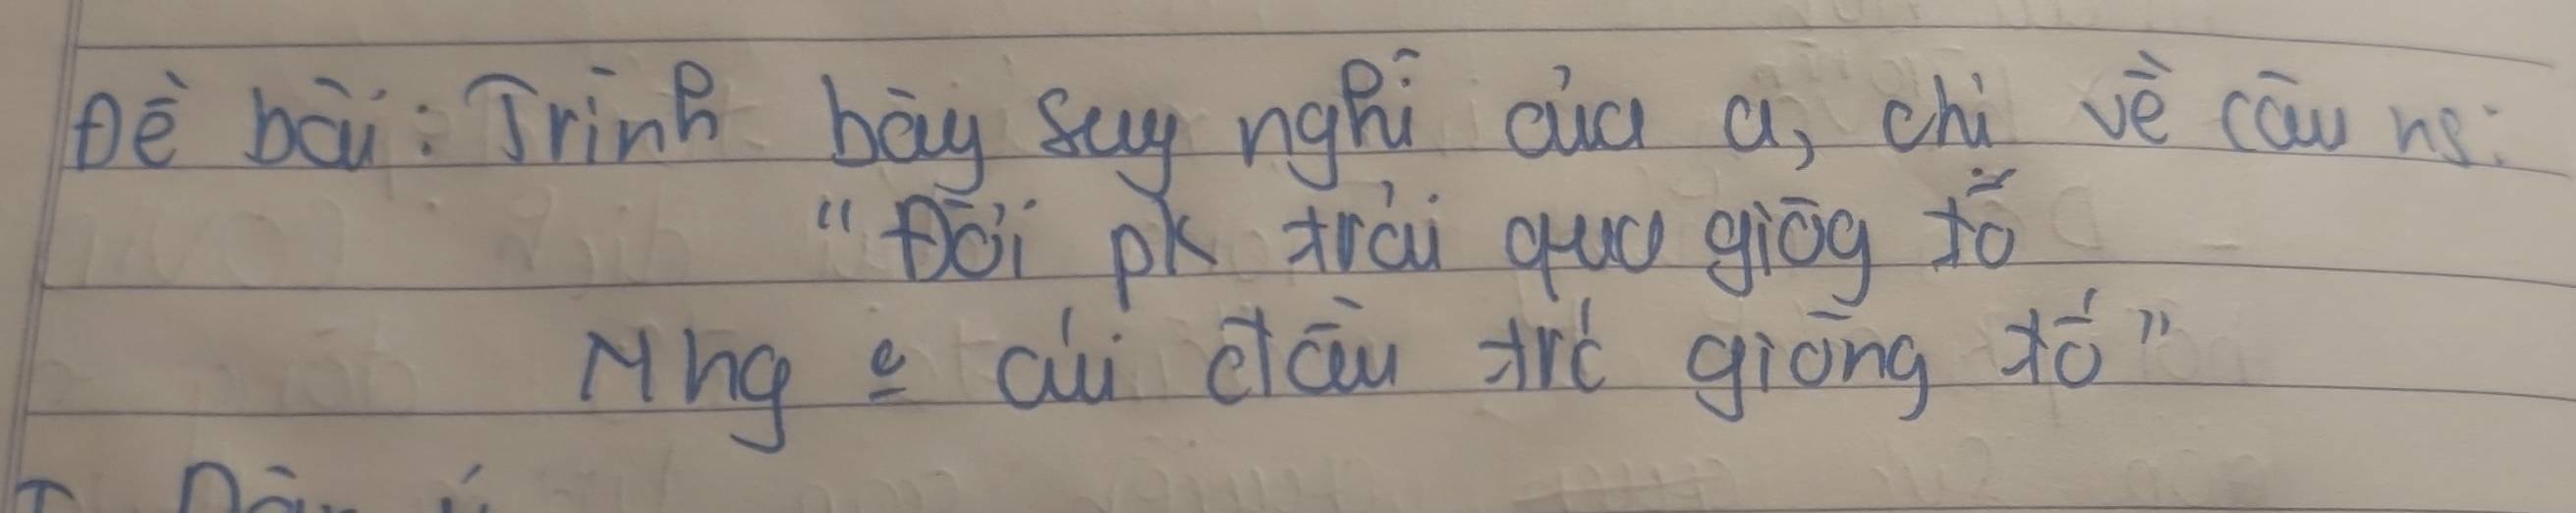 Đề bài: Trình bày suy nghĩ của a, chị về câu ns:
"Đời pk trải qua giôg tố
Nhg o cúi đầu trc giông tố"
I Dàn ý